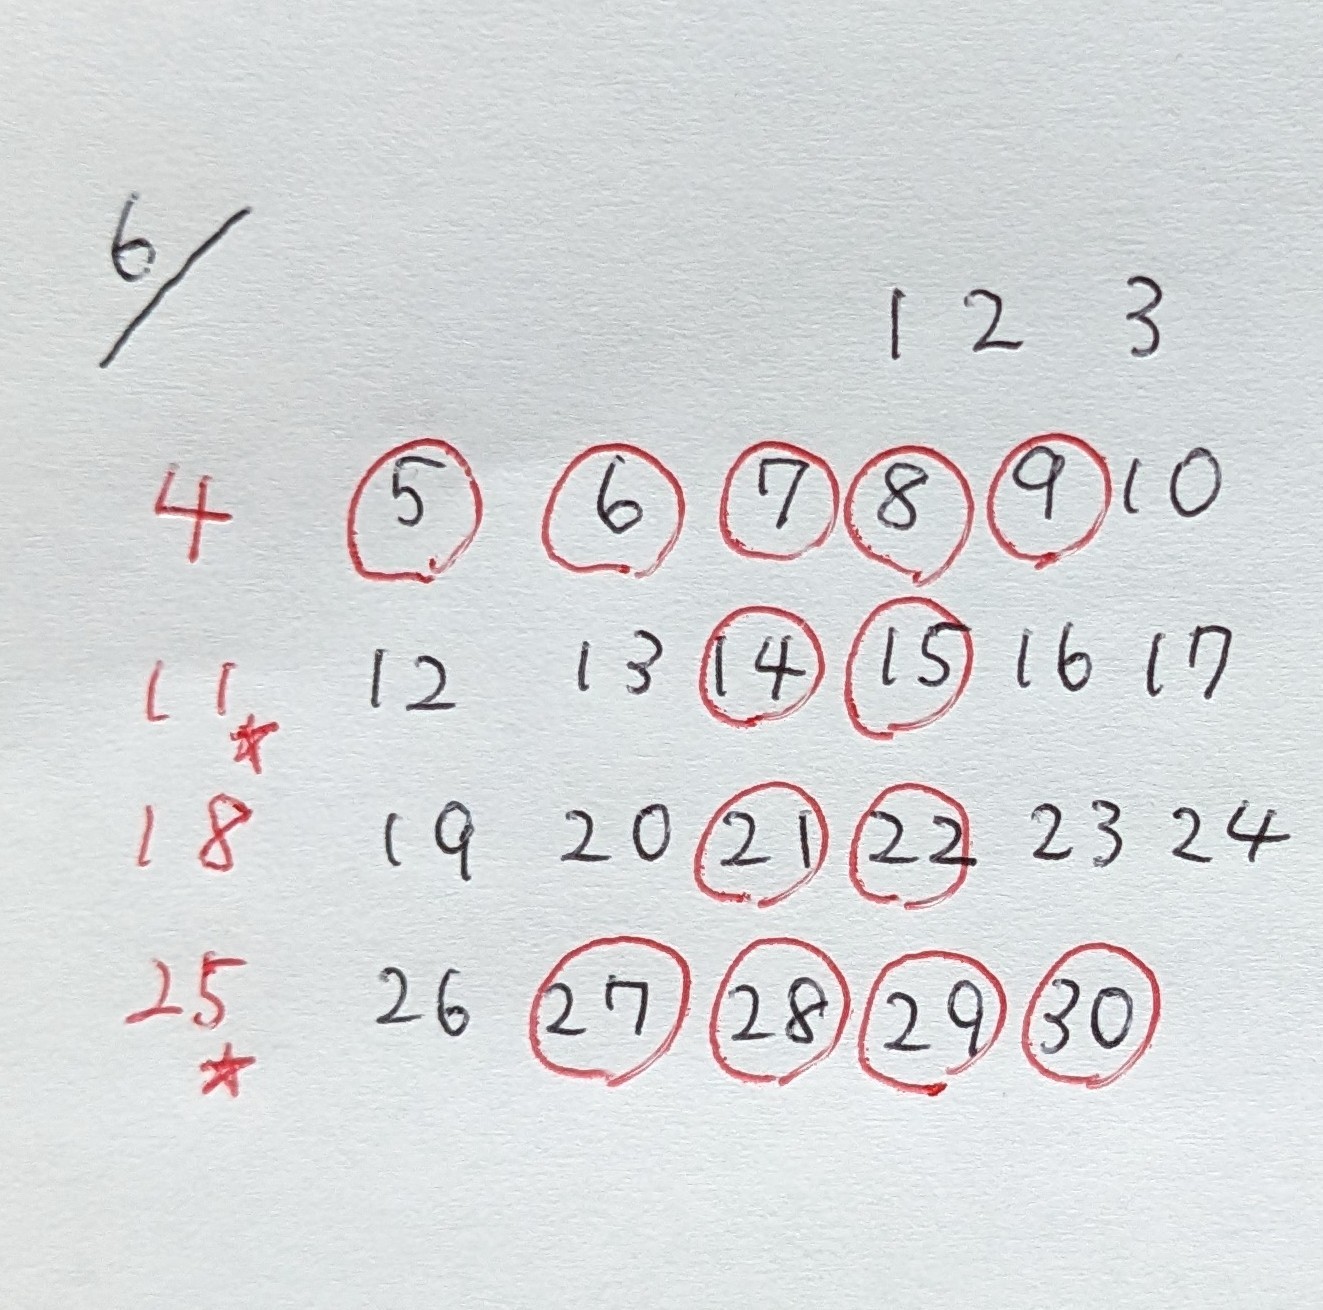 6/
1 2 3
4 5 6 7 8 9 10
11 12 13 14 15 16 17
18 19 20 21 22 23 24
25 26 27 28 29 30